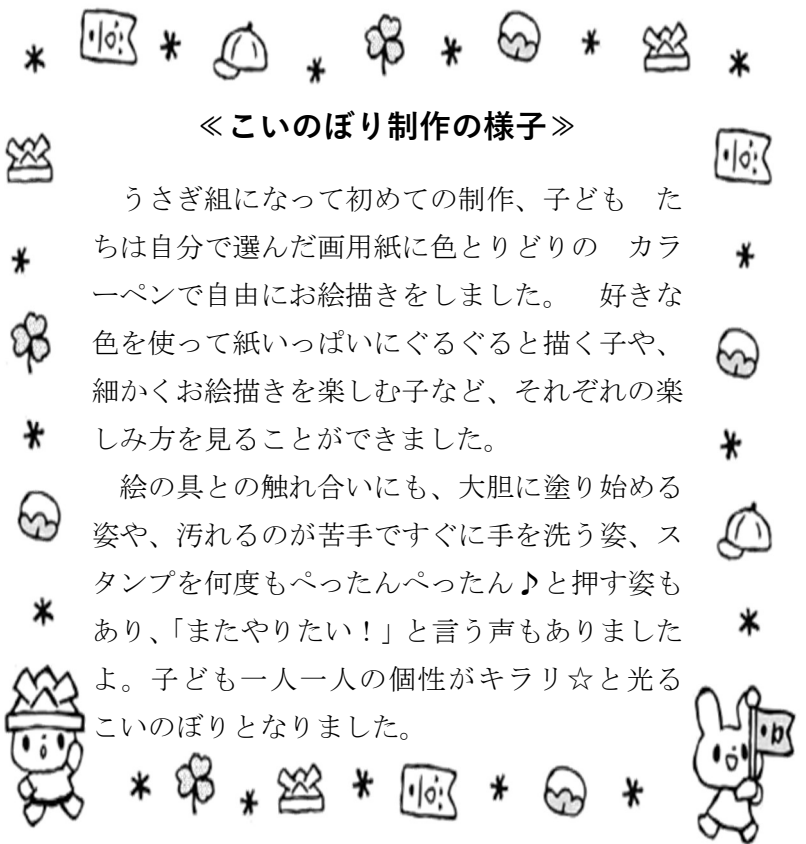 ≪こいのぼり制作の様子≫
　うさぎ組になって初めての制作、子ども　た
ちは自分で選んだ画用紙に色とりどりの　カラ
ーペンで自由にお絵描きをしました。　好きな
色を使って紙いっぱいにぐるぐると描く子や、
細かくお絵描きを楽しむ子など、それぞれの楽
しみ方を見ることができました。
　絵の具との触れ合いにも、大胆に塗り始める
姿や、汚れるのが苦手ですぐに手を洗う姿、ス
タンプを何度もぺったんぺったん♪と押す姿も
あり、「またやりたい！」と言う声もありました
よ。子ども一人一人の個性がキラリ☆と光る
こいのぼりとなりました。